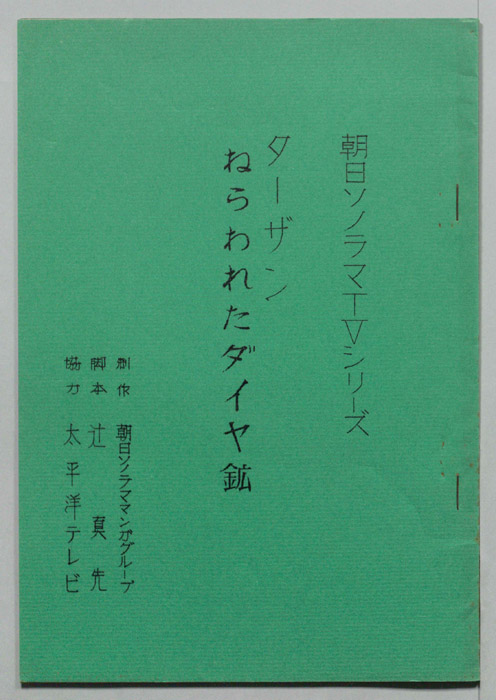 朝日ソノラマTVシリーズ
ターザン
ねらわれたダイヤ鉱
制作 朝日ソノラママンガグループ
脚本 辻真先
協力 太平洋テレビ